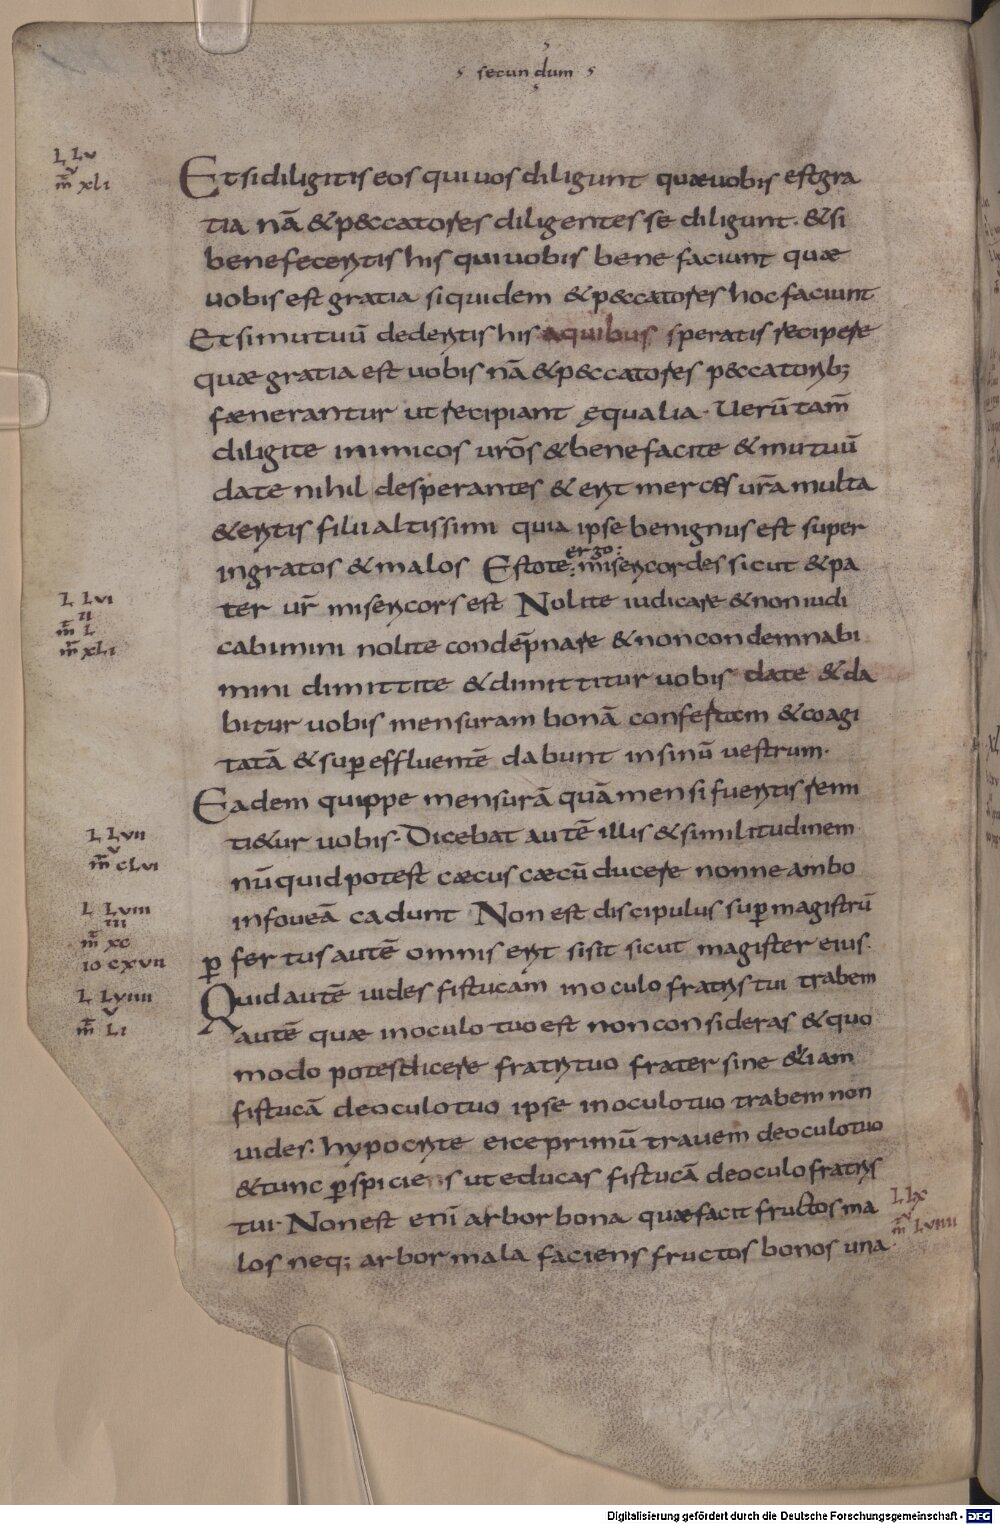 secundum
L Lv
v
m̄ xli
Et si diligitis eos qui uos diligunt quae uobis est gra
tia nā & p&ccatores diligentes se diligunt. & si
bene feceritis his qui uobis bene faciunt quae
uobis est gratia siquidem & p&ccatores hoc faciunt
Et si mutuū dederitis his a quibus speratis recipere
quae gratia est uobis nā & p&ccatores p&ccatorib;
faenerantur ut recipiant ęqualia. Uerū tam̄
diligite inimicos urōs & bene facite & mutuū
date nihil desperantes & erit merces urā multa
& eritis filii altissimi quia ipse benignus est super
ingratos & malos Estote ergo: misericordes sicut & pa
L Lvi
ii
m̄ L
m̄ xLi
ter ur̄ misericors est Nolite iudicare & non iudi
cabimini nolite condēpnare & non condemnabi
mini dimittite & dimittitur uobis date & da
bitur uobis mensuram bonā confertam & coagi
tatā & suꝑeffluentē dabunt in sinū uestrum.
Eadem quippe mensurā quā mensi fueritis remi
L Lvii
v
m̄ cLvi
ti&ur uobis. Dicebat autē illis & similitudinem
nūquid potest caecus caecū ducere nonne ambo
L Lviii
iii
m̄ xc
io cxvii
in foueā cadunt Non est discipulus suꝑ magistrū
ꝑfertus autē omnis erit si sit sicut magister eius.
L Lviiii
v
m̄ Li
Quid autē uides fistucam in oculo fratris tui trabem
autē quae in oculo tuo est non consideras & quo
modo potes dicere fratri tuo frater sine & iam
fistucā de oculo tuo ipse in oculo tuo trabem non
uides. hypocrite eice primū trauem de oculo tuo
& tunc ꝑspicies ut educas fistucā de oculo fratris
tui. Non est enī arbor bona quae facit fructos ma
L Lx
v
m̄ Lviiii
los neq; arbor mala faciens fructos bonos una
Digitalisierung gefördert durch die Deutsche Forschungsgemeinschaft - DFG